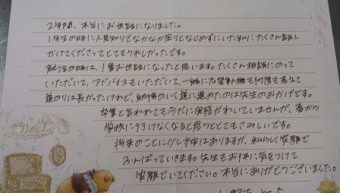 2年間、本当にお世話になりました。
1年生の時に人見知りでなかなか周りとなじめずにいた私に たくさん話し
かけてくださってとてもうれしかったです。
就活の時は、1番お世話になったと思います。たくさん相談にのって
いただいて、アドバイスもいただいて、一緒に志望動機も何度も考えて
道のりは長かったけれど、幼稚園の先生に進めたのは先生のおかげです。
卒業と言われてもまだに実感がわいていませんが、春から
学校に行けなくなると思うととてもさみしいです。
将来のことに少し不安はありますが、私らしく笑顔で
がんばっていきます。先生もお体に気をつけて
笑顔でいてください。本当にありがとうございました。